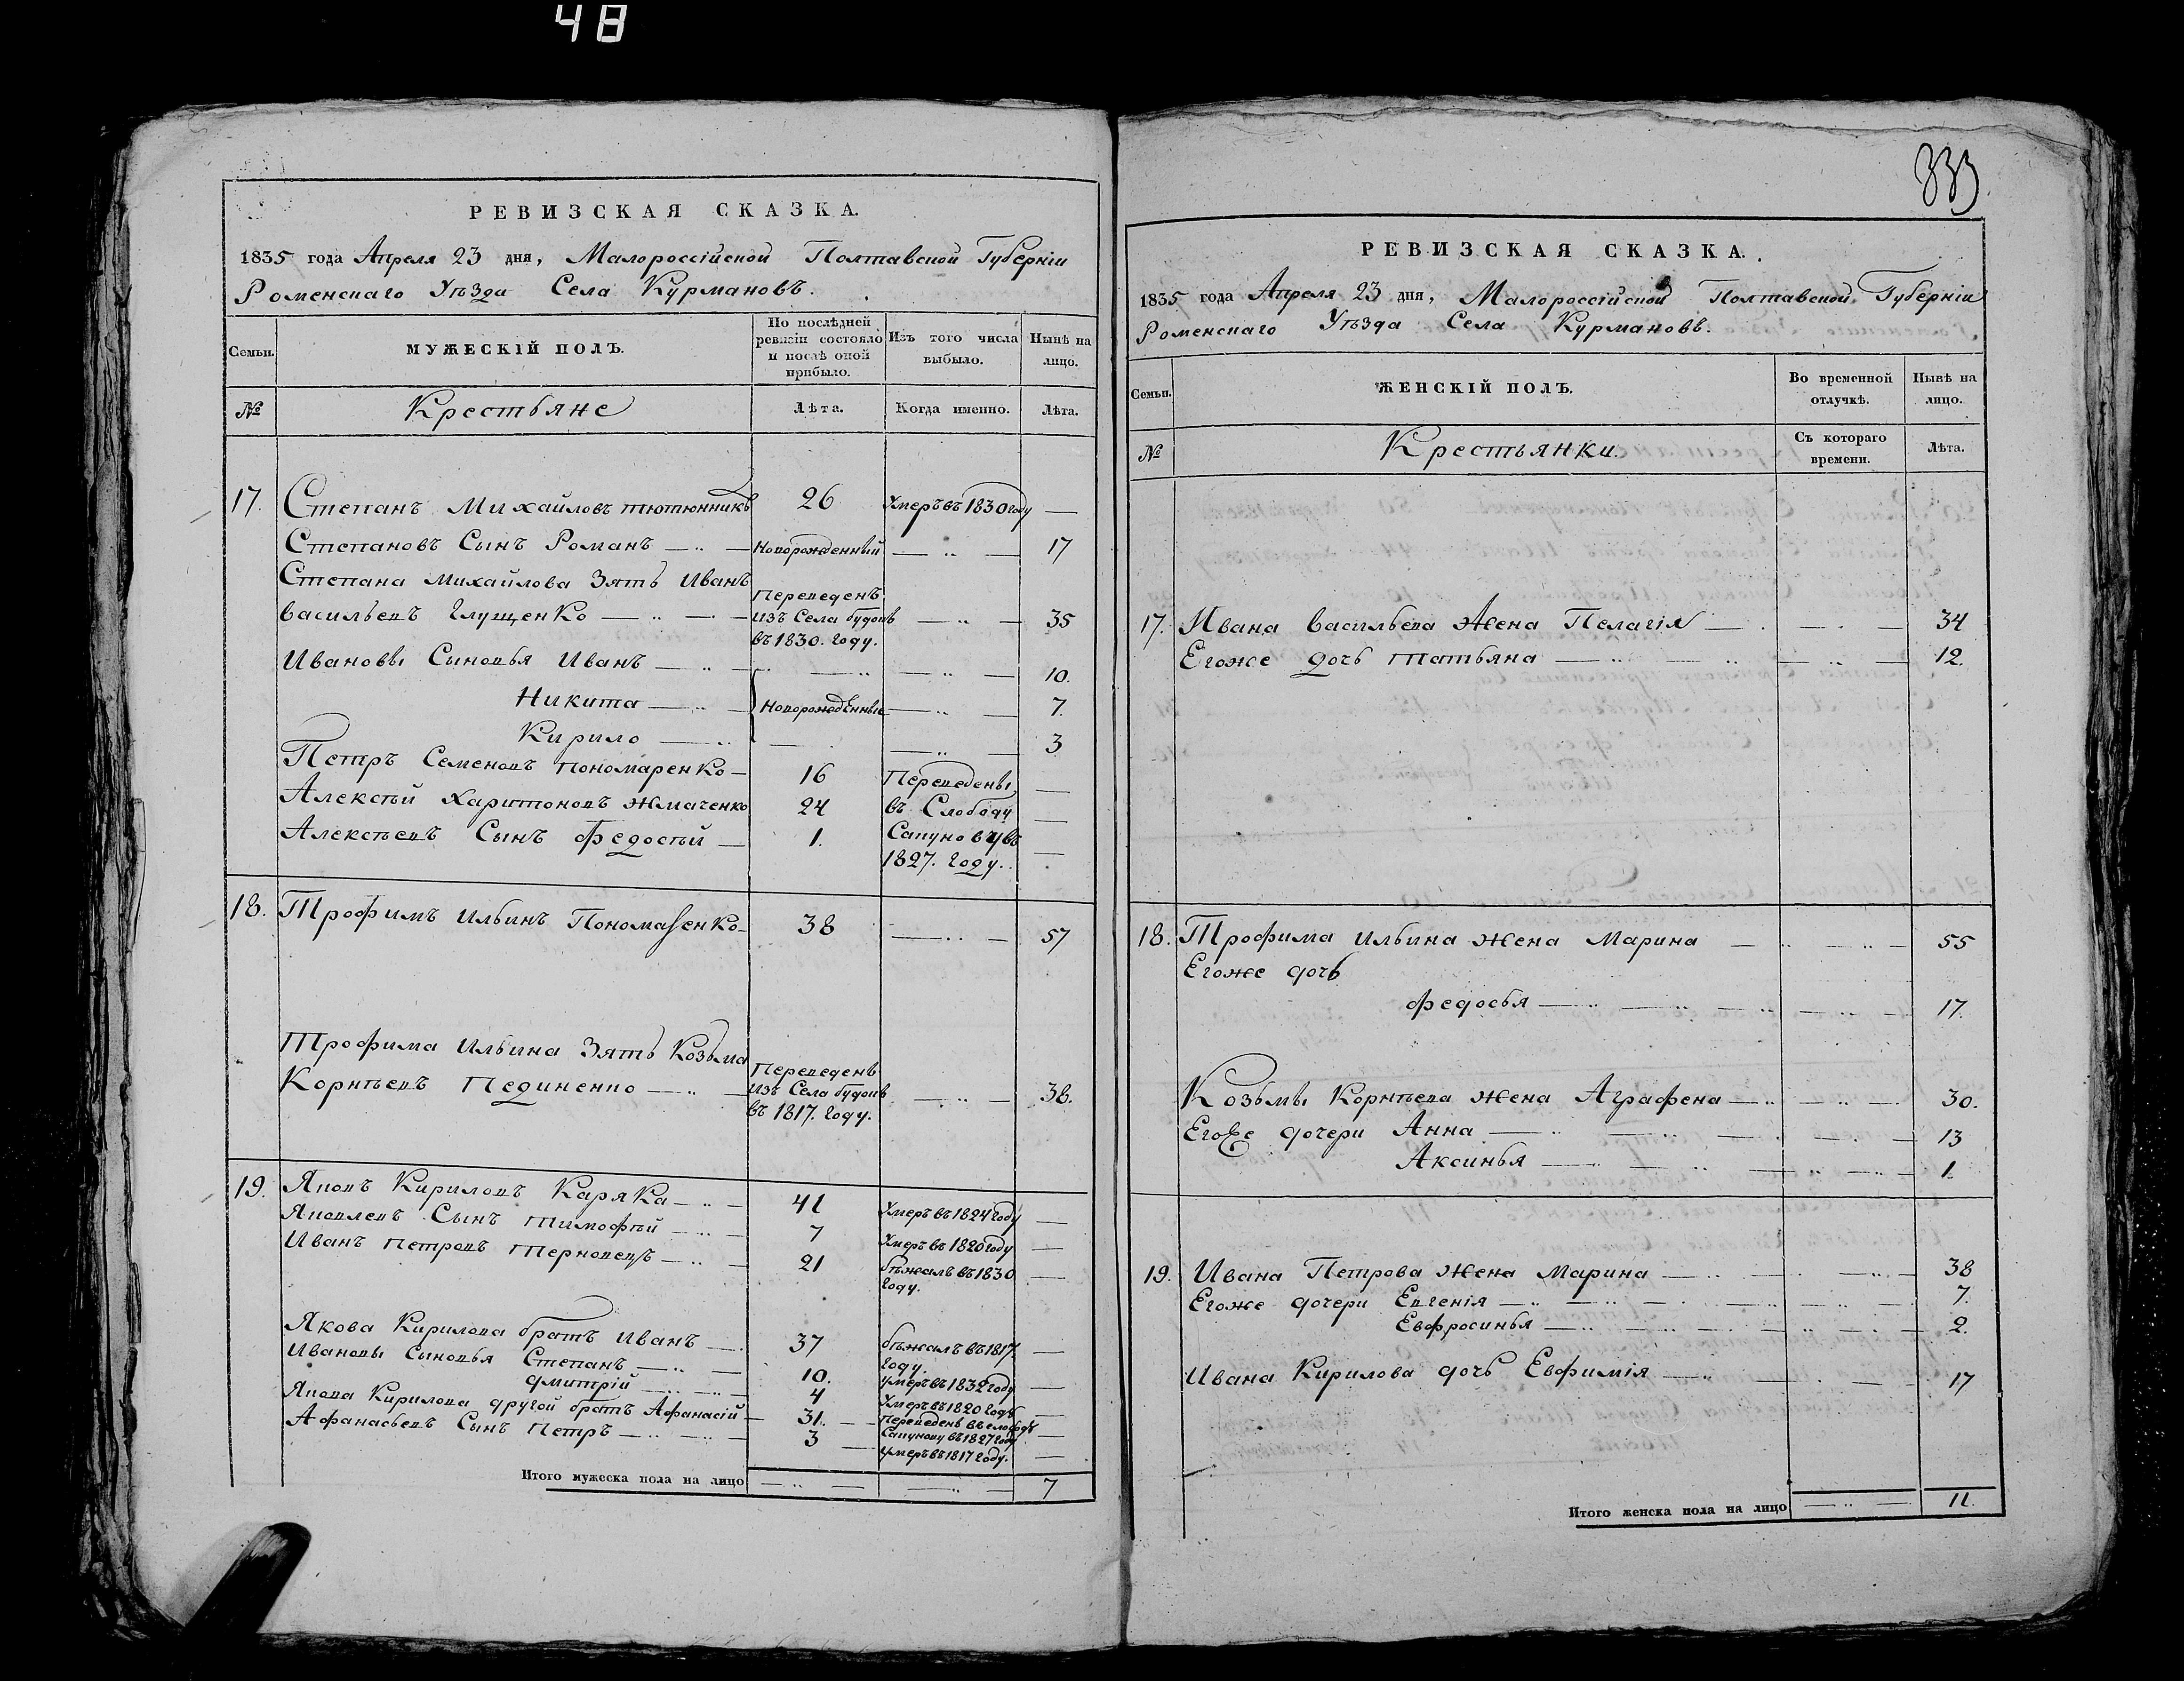 48
РЕВИЗСКАЯ СКАЗКА.
1835 года Апреля 23 дня, Малороссійской Полтавской Губерніи
Роменскаго Уѣзда Села Курмановъ.
Семьи.
МУЖЕСКІЙ ПОЛЪ.
По послѣдней ревизіи состояло и послѣ оной прибыло.
Изъ того числа выбыло.
Нынѣ на лицо.
№ Крестьяне Лѣта. Когда именно. Лѣта.
17. Степанъ Михайловъ тютюнникъ 26 Умеръ въ 1830 году —
Степановъ Сынъ Романъ — Новорожденный — 17
Степана Михайлова Зять Иванъ
Васильевъ Глущенко — Переведенъ изъ Села будокъ въ 1830. году. — 35
Ивановы Сыновья Иванъ — 10.
Никита — Новорожденные — 7.
Кирило — 3
Петръ Семеновъ пономаренко — 16 Переведены —
Алексѣй Харитоновъ жмаченко 24 въ Слободу —
Алексѣевъ Сынъ федосѣй — 1. Сапунову въ —
1827. году.
18. Трофимъ Ильинъ Пономаренко — 38 — 57
Трофима Ильина Зять Козьма
Корнѣевъ Пединенко — Переведенъ изъ Села будокъ въ 1817. году. — 38.
19. Яковъ Кириловъ Каряка — 41 Умеръ въ 1824 году —
Яковлевъ Сынъ тимофѣй — 7 Умеръ въ 1820 году —
Иванъ петровъ терновецъ — 21 бѣжалъ въ 1830 году. —
Якова Кирилова братъ Иванъ — 37 бѣжалъ въ 1817. году. —
Ивановы Сыновья Степанъ — 10. умеръ въ 1832 году —
дмитрій — 4 Умеръ въ 1820 году —
Якова Кирилова другой братъ Афанасій — 31. — переведенъ въ слободу Сапунову въ 1827 году —
Афанасьевъ Сынъ Петръ — 3 — умеръ въ 1817 году. —
Итого мужеска пола на лицо — — 7
333
РЕВИЗСКАЯ СКАЗКА.
1835 года Апреля 23 дня, Малороссійской Полтавской Губерніи
Роменскаго Уѣзда Села Курмановъ.
Семьи.
ЖЕНСКІЙ ПОЛЪ.
Во временной отлучкѣ.
Нынѣ на лицо.
№ Крестьянки. Съ котораго времени. Лѣта.
17. Ивана Васильева Жена Пелагія — 34
Егоже дочь татьяна — 12.
18. Трофима Ильина жена Марина — 55
Егоже дочь
федосья — 17.
Козьмы Корнѣева жена Аграфена — 30.
Егоже дочери Анна — 13
Аксинья — 1.
19. Ивана Петрова жена Марина — 38
Егоже дочери Евгенія — 7.
Евфросинья — 2.
Ивана Кирилова дочь Евфимія — 17
Итого женска пола на лицо — 11.